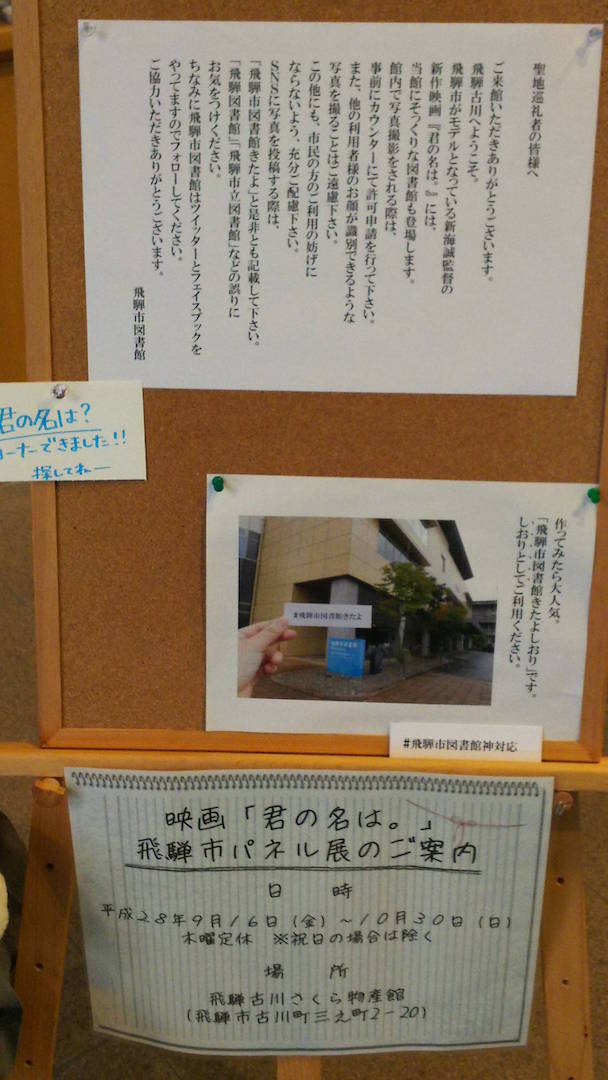 聖地巡礼者の皆様へ
ご来館いただきありがとうございます。
飛騨古川へようこそ。
飛騨市がモデルとなっている新海誠監督の
新作映画『君の名は。』には、
当館にそっくりな図書館も登場します。
館内で写真撮影をされる際は、
事前にカウンターにて許可申請を行って下さい。
また、他の利用者様のお顔が識別できるような
写真を撮ることはご遠慮下さい。
この他にも、市民の方のご利用の妨げに
ならないよう、充分ご配慮下さい。
SNSに写真を投稿する際は、
「飛騨市図書館きたよ」と是非とも記載して下さい。
「飛騨図書館」「飛騨市立図書館」などの誤りに
お気をつけください。
ちなみに飛騨市図書館はツイッターとフェイスブックを
やってますのでフォローしてください。
ご協力いただきありがとうございます。
飛騨市図書館
君の名は?
コーナーできました!!
探してねー
作ってみたら大人気。
「飛騨市図書館きたよしおり」です。
しおりとしてご利用ください。
#飛騨市図書館きたよ
#飛騨市図書館神対応
映画「君の名は。」
飛騨市パネル展のご案内
日 時
平成28年9月16日(金)~10月30日(日)
木曜定休 ※祝日の場合は除く
場 所
飛騨古川さくら物産館
(飛騨市古川町三之町2-20)